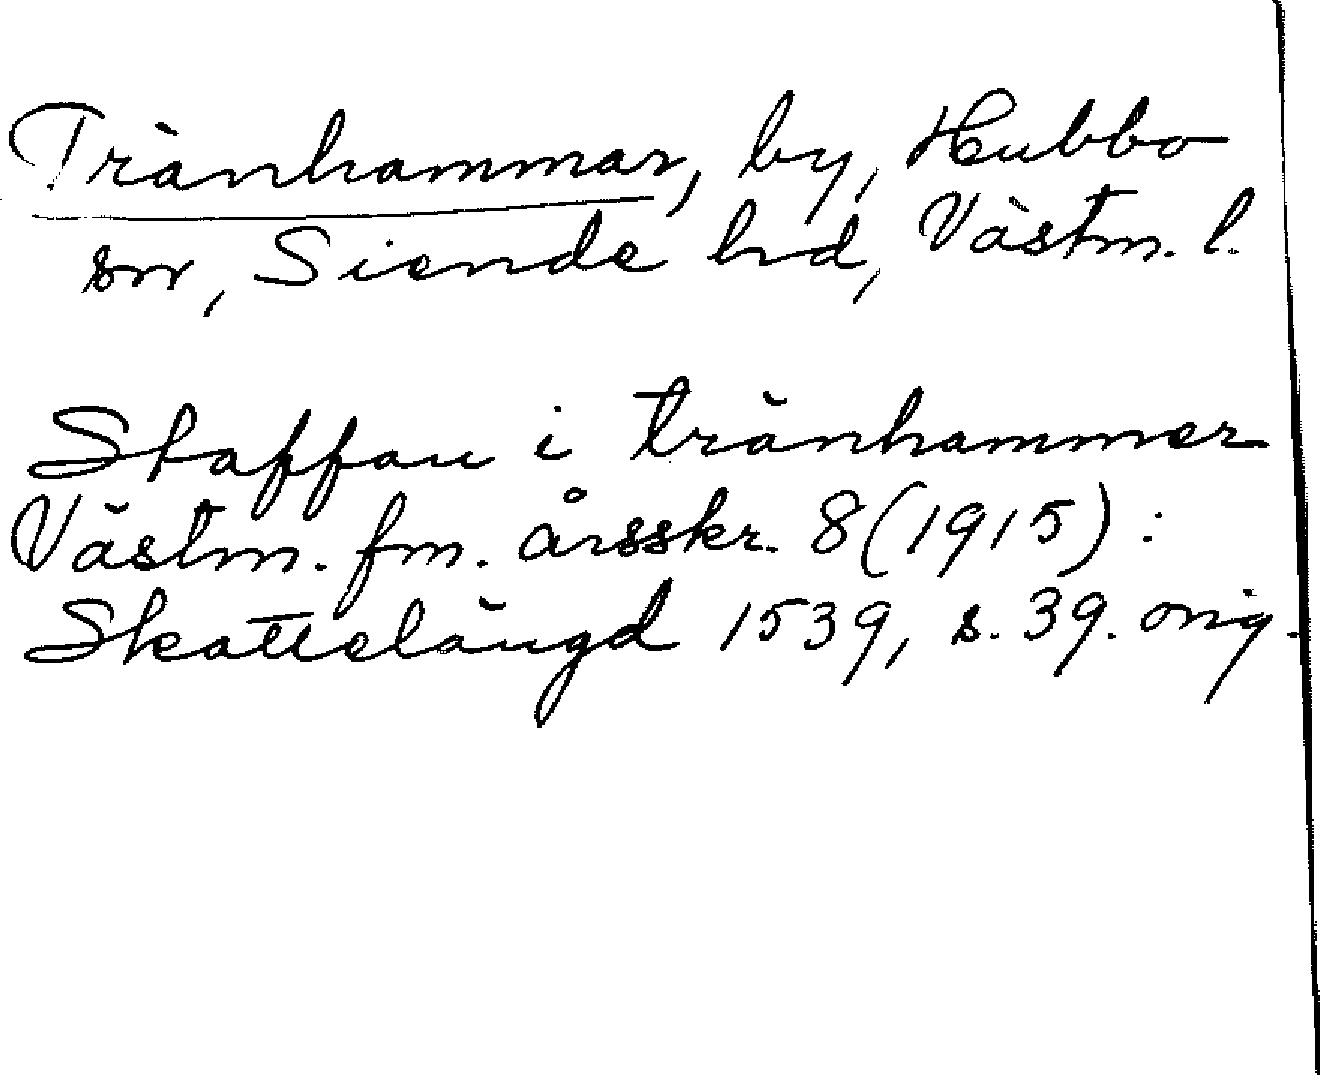 Tränhammar, by, Hubbo
sn, Siende hd, Västm. l.
Staffan i tränhammer
Västm. fm. årsskr. 8 (1915):
Skattelängd 1539, s. 39. orig.